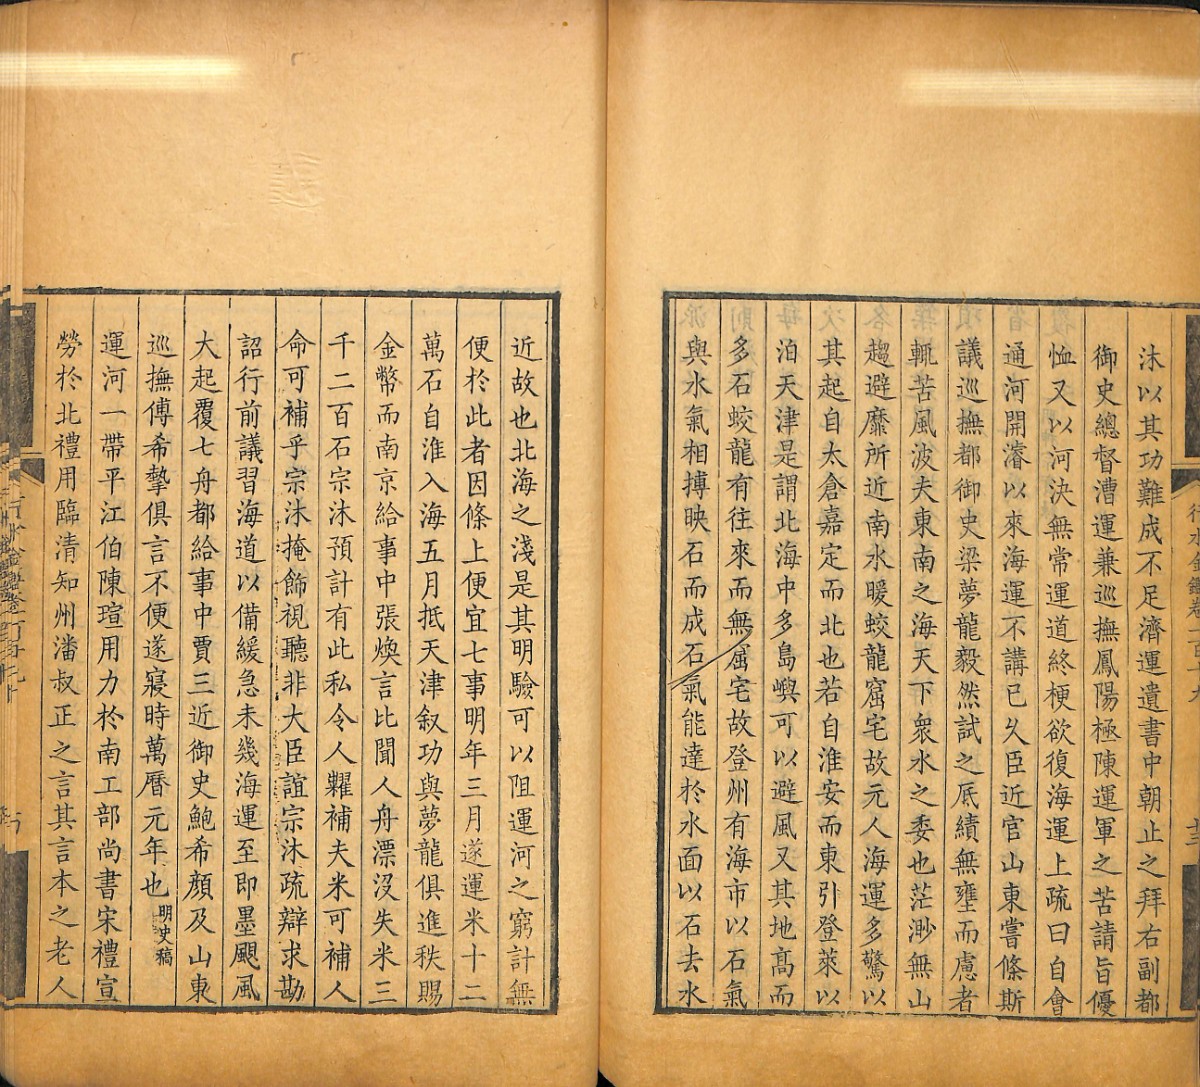 沐以其功難成不足濟運遺書中朝止之拜右副都
御史總督漕運兼巡撫鳳陽極陳運軍之苦請旨優
恤又以河決無常運道終梗欲復海運上疏曰自會
通河開濬以來海運不講已久臣近官山東嘗條斯
議巡撫都御史梁夢龍毅然試之厎績無壅而慮者
輒苦風波夫東南之海天下衆水之委也茫渺無山
趨避靡所近南水暖蛟龍窟宅故元人海運多驚以
其起自太倉嘉定而北也若自淮安而東引登萊以
泊天津是謂北海中多島嶼可以避風又其地高而
多石蛟龍有往來而無窟宅故登州有海市以石氣
與水氣相搏映石而成石氣能達於水面以石去水
近故也北海之淺是其明驗可以阻運河之窮計無
便於此者因條上便宜七事明年三月遂運米十二
萬石自淮入海五月抵天津叙功與夢龍俱進秩賜
金幣而南京給事中張煥言比聞人舟漂沒失米三
千二百石宗沐預計有此私令人糴補夫米可補人
命可補乎宗沐掩飾視聽非大臣誼宗沐疏辯求勘
詔行前議習海道以備緩急未幾海運至即墨颶風
大起覆七舟都給事中賈三近御史鮑希顏及山東
巡撫傅希摯俱言不便遂寢時萬曆元年也明史稿
運河一帶平江伯陳瑄用力於南工部尚書宋禮宣
勞於北禮用臨清知州潘叔正之言其言本之老人